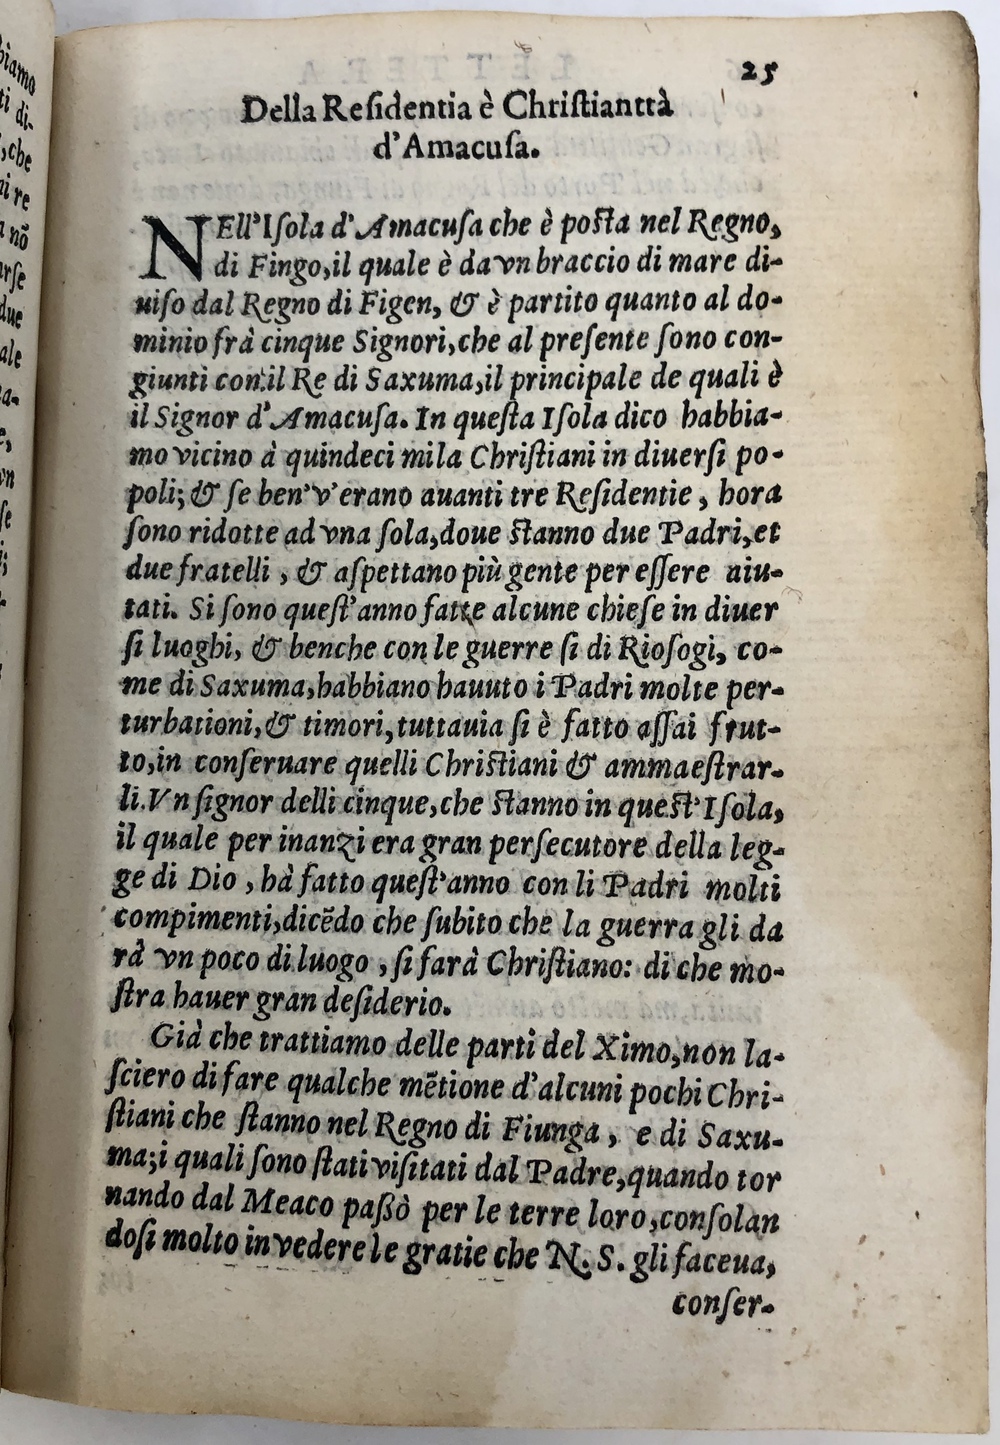 25
Della Reſidentia è Chriſtianttà
d'Amacuſa.
NEll'Iſola d'Amacuſa che è poſta nel Regno,
di Fingo,il quale è da vn braccio di mare di-
uiſo dal Regno di Figen, & è partito quanto al do-
minio frà cinque Signori,che al preſente ſono con-
giunti con il Re di Saxuma,il principale de quali è
il Signor d'Amacuſa. In queſta Iſola dico habbia-
mo vicino à quindeci mila Chriſtiani in diuerſi po-
poli; & ſe ben'v'erano auanti tre Reſidentie, hora
ſono ridotte ad vna ſola,doue ſtanno due Padri,et
due fratelli, & aſpettano più gente per eſſere aiu-
tati. Si ſono queſt'anno fatte alcune chieſe in diuer
ſi luoghi, & benche con le guerre ſi di Rioſogi, co-
me di Saxuma,habbiano hauuto i Padri molte per-
turbationi,& timori,tuttauia ſi è fatto aſſai frut-
to,in conſeruare quelli Chriſtiani & ammaeſtrar-
li.Vn ſignor delli cinque,che ſtanno in queſt'Iſola,
il quale per inanzi era gran perſecutore della leg-
ge di Dio, hà fatto queſt'anno con li Padri molti
compimenti,dicẽdo che ſubito che la guerra gli da
rà vn poco di luogo, ſi farà Chriſtiano: di che mo-
ſtra hauer gran deſiderio.
Già che trattiamo delle parti del Ximo,non la-
ſciero di fare qualche mẽtione d'alcuni pochi Chri-
ſtiani che ſtanno nel Regno di Fiunga, e di Saxu-
ma;i quali ſono ſtati viſitati dal Padre,quando tor
nando dal Meaco paßò per le terre loro,conſolan
doſi molto in vedere le gratie che N. S. gli faceua,
conſer-
biamo
ti di-
,che
ni re
nõ
arſe
due
ale
vn
ſe